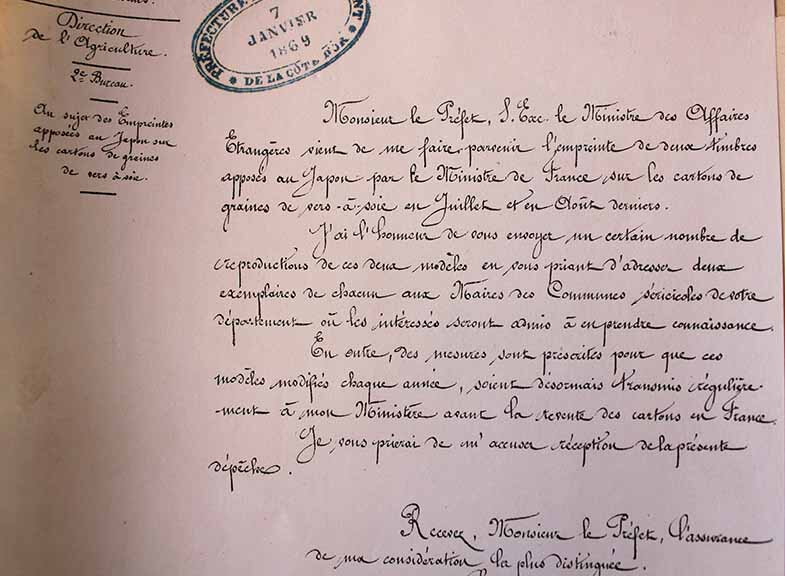 Direction
de l'Agriculture.
2e Bureau.
Au sujet des Empreintes
apposées au Japon sur
les cartons de graines
de vers à soie.
PRÉFECTURE
7
JANVIER
1869
DE LA CÔTE D'OR
Monsieur le Préfet, S. Exc. le Ministre des Affaires
Etrangères vient de me faire parvenir l'empreinte de deux timbres
apposés au Japon par le Ministre de France sur les cartons de
graines de vers-à-soie en Juillet et en Août derniers.
J'ai l'honneur de vous envoyer un certain nombre de
reproductions de ces deux modèles en vous priant d'adresser deux
exemplaires de chacun aux Maires des Communes séricicoles de votre
département où les intéressés seront admis à en prendre connaissance.
En outre, des mesures sont prescrites pour que ces
modèles modifiés chaque année, soient désormais transmis régulière-
-ment à mon Ministère avant la revente des cartons en France.
Je vous prierai de m'accuser réception de la présente
dépêche.
Recevez, Monsieur le Préfet, l'assurance
de ma considération la plus distinguée.